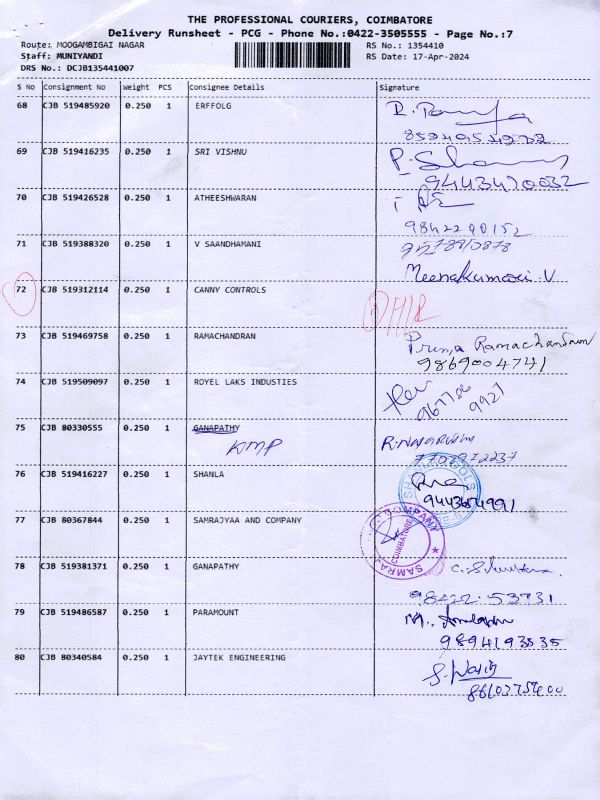 THE PROFESSIONAL COURIERS, COIMBATORE
Delivery Runsheet - PCG - Phone No.:0422-3505555 - Page No.:7
Route: MOOGAMBIGAI NAGAR RS No.: 1354410
Staff: MUNIYANDI RS Date: 17-Apr-2024
DRS No.: DCJB135441007
S No Consignment No Weight PCS Consignee Details Signature
68 CJB 519485920 0.250 1 ERFFOLG
69 CJB 519416235 0.250 1 SRI VISHNU
9443470032
70 CJB 519426528 0.250 1 ATHEESHWARAN
9842290152
71 CJB 519388320 0.250 1 V SAANDHAMANI
Meenakumari.V
72 CJB 519312114 0.250 1 CANNY CONTROLS
73 CJB 519469758 0.250 1 RAMACHANDRAN Prema Ramachandran
9869004741
74 CJB 519509097 0.250 1 ROYEL LAKS INDUSTIES
75 CJB 80330555 0.250 1 GANAPATHY
KMP
76 CJB 519416227 0.250 1 SHANLA
9443654991
77 CJB 80367844 0.250 1 SAMRAJYAA AND COMPANY
COMPANY
COIMBATORE
SAMRAJ
78 CJB 519381371 0.250 1 GANAPATHY
98422-53731
79 CJB 519486587 0.250 1 PARAMOUNT
9894193535
80 CJB 80340584 0.250 1 JAYTEK ENGINEERING